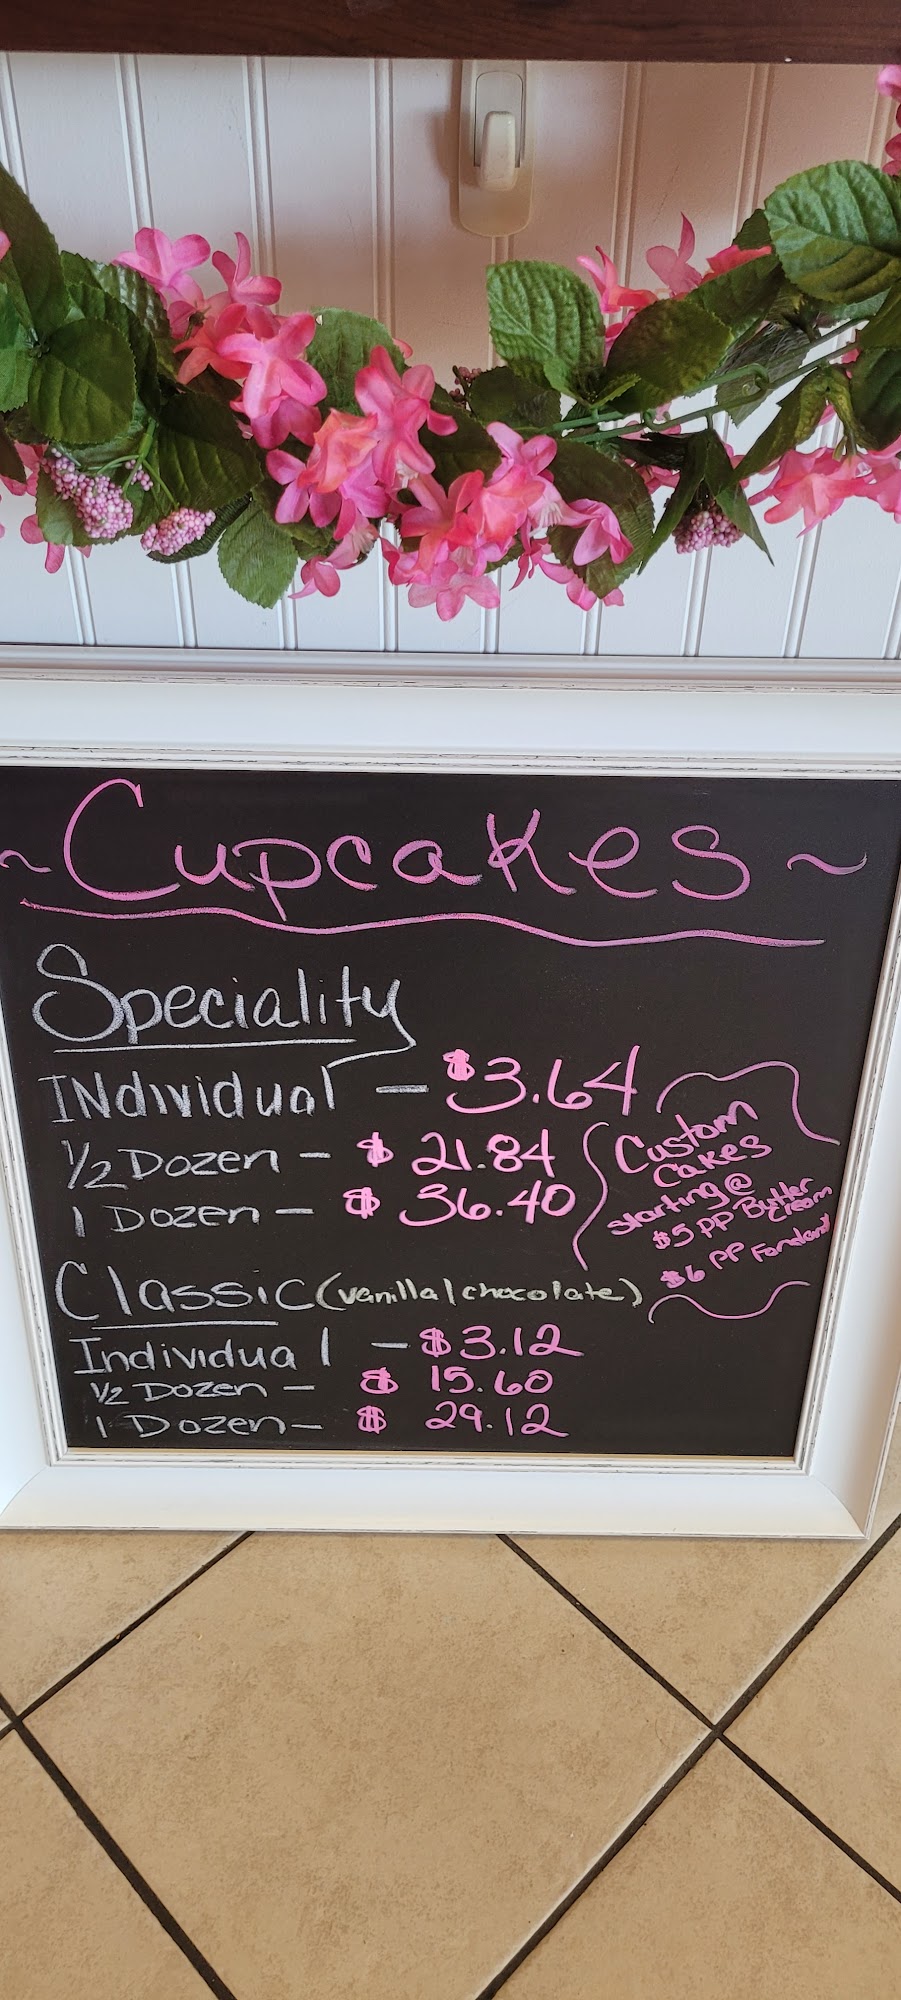 ~Cupcakes~
Speciality
Individual - $3.64
1/2 Dozen - $ 21.84
1 Dozen - $ 36.40
Custom
Cakes
starting @
$5 PP Butter
Cream
$6 PP Fondant
Classic (vanilla/chocolate)
Individual - $3.12
1/2 Dozen - $ 15.60
1 Dozen - $ 29.12